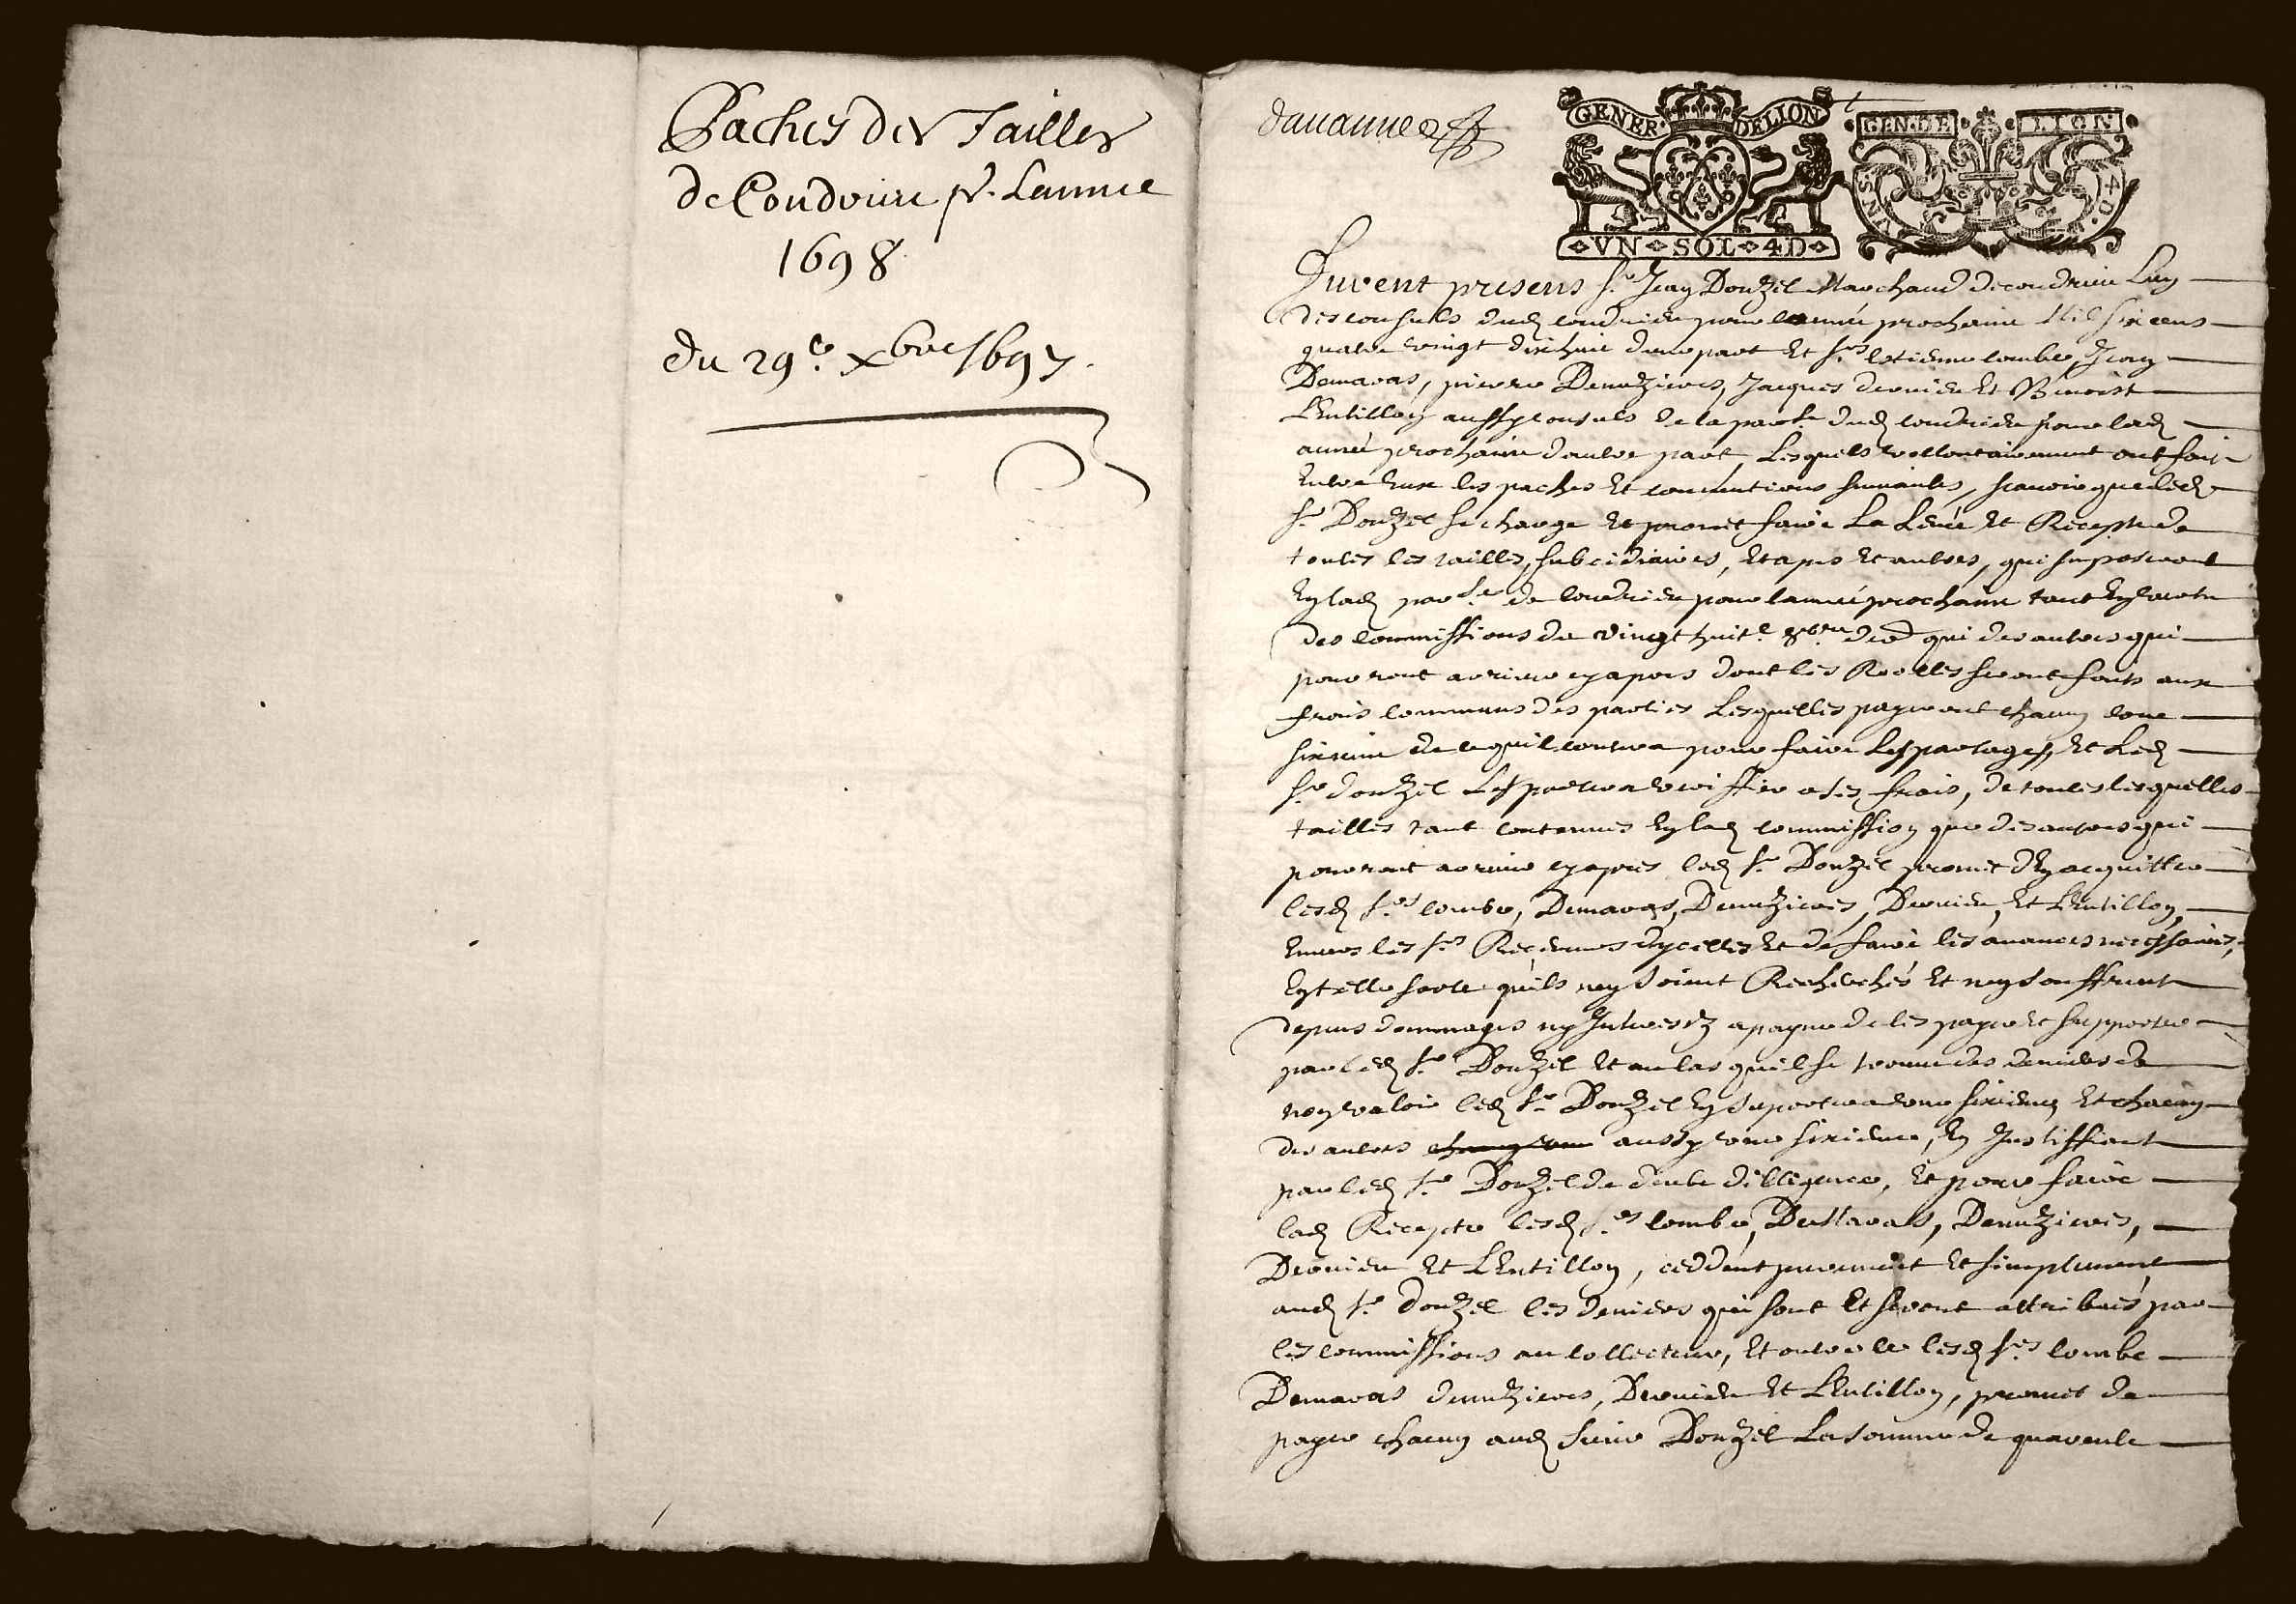 Paches des Tailles
de Condrieu pr. Lannee
1698
du 29e. xbre 1697.
GENER. DE LION
GEN. DE LION
VN SOL 4D
Furent presens sr. Jean Donzel Marchand de condrieu Lun
des consuls dud condrieu pour lannée prochaine Mil six cens
quatre vingt dixhuit dune part Et srs Estienne combe, Jean
Demaras, pierre Denuzieres, Jacques Dervieu Et Benoist
LEntillon aussy consuls de la parse dud condrieu pour lad
année prochaine dautre part, Lesquels vollontairement ont fait
Entre Eux les paches Et conventions suivantes, scavoir que led
sr. Donzel se charge Et promet faire La Levée Et Recepte de
toutes les tailles, subcidiaires, Etapes Et autres, qui simposeront
En lad parse de Condrieu pour lannée prochaine tant En vertu
des commissions du vingt huite. 8bre. der que des autres qui
pourront arriver cyapres dont les Roolles seront faits aux
frais communs des parties Lesquelles payeront chacun une
sixeme de ce quil coutera pour faire Les partages, Et Led
sr. donzel Les fera veriffier a ses frais, de toutes lesquelles
tailles tant contenues En lad commission que des autres qui
pourront arriver cyapres led sr. Donzel promet dEn acquitter
lesd srs combe, Demaras, Denuzieres, Dervieu, Et LEntillon,
Envers les srs Receveurs dycelles Et de faire les avances necessaires,
En telle sorte quils nen soient Recherchés Et nen souffrent
depens dommages ny Interestz a payne de les payer Et supporter
par led sr. Donzel Et au cas quil se trouve des deniers de
non valoir led sr. Donzel En suportera une sixieme Et chacun
des autres aussy une sixieme, En Justiffiant
par led sr. Donzel de deube dilligence, Et pour faire
lad Recepte lesd srs combe, DeMaras, Denuzieres,
Dervieu Et LEntillon, ceddent purement Et simplement
aud sr. donzel les deniers qui sont Et seront attribués par
les commissions au collecteur, Et outre ce lesd srs combe
Demaras denuzieres, Dervieu Et LEntillon, promet de
payer chacun aud sieur Donzel La somme de quarente